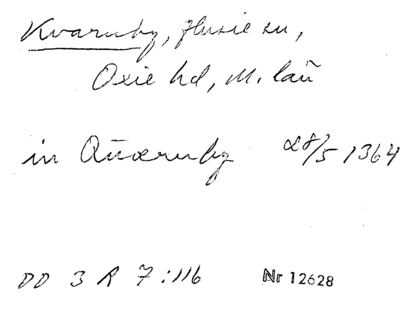 Kvarnby, Husie sn,
Oxie hd, M. län
in Quærnby 28/5 1364
DD 3 R 7:116 Nr 12628